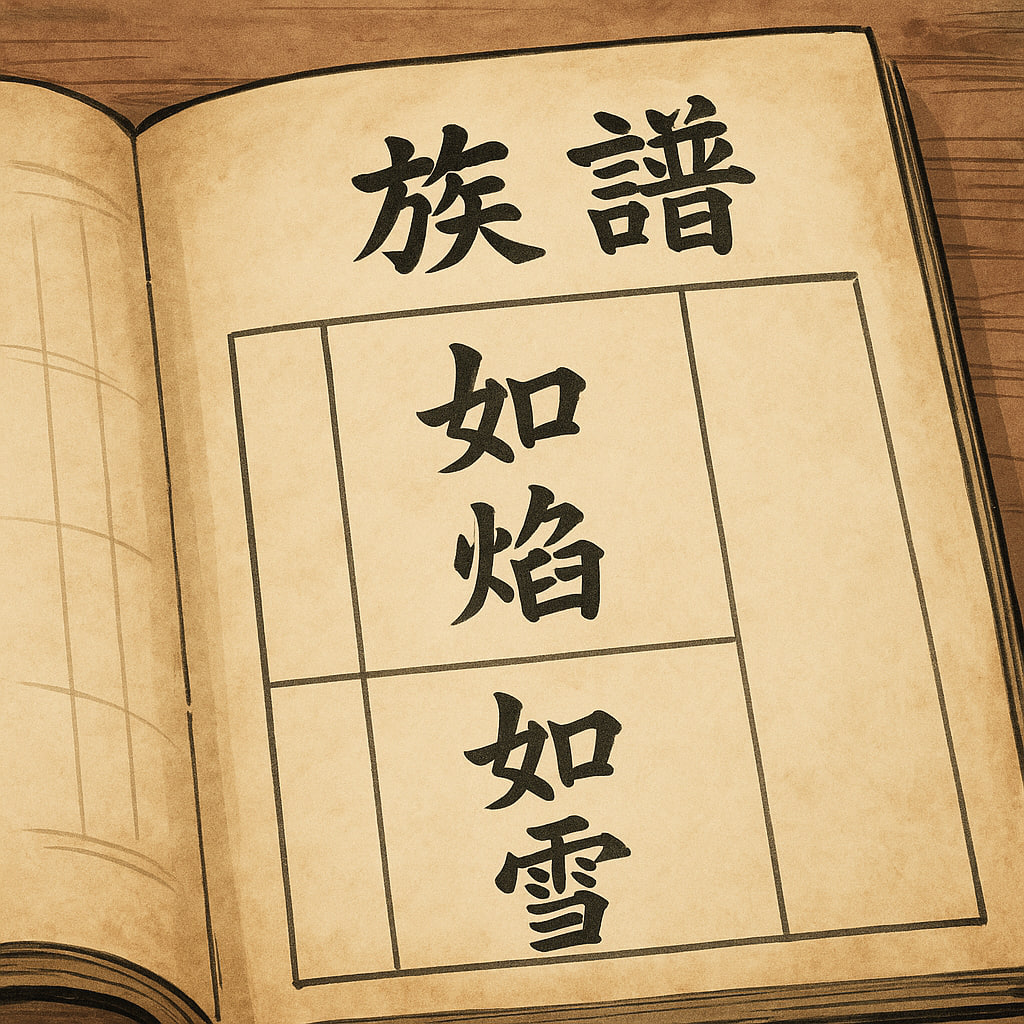 族譜
如焰
如雪